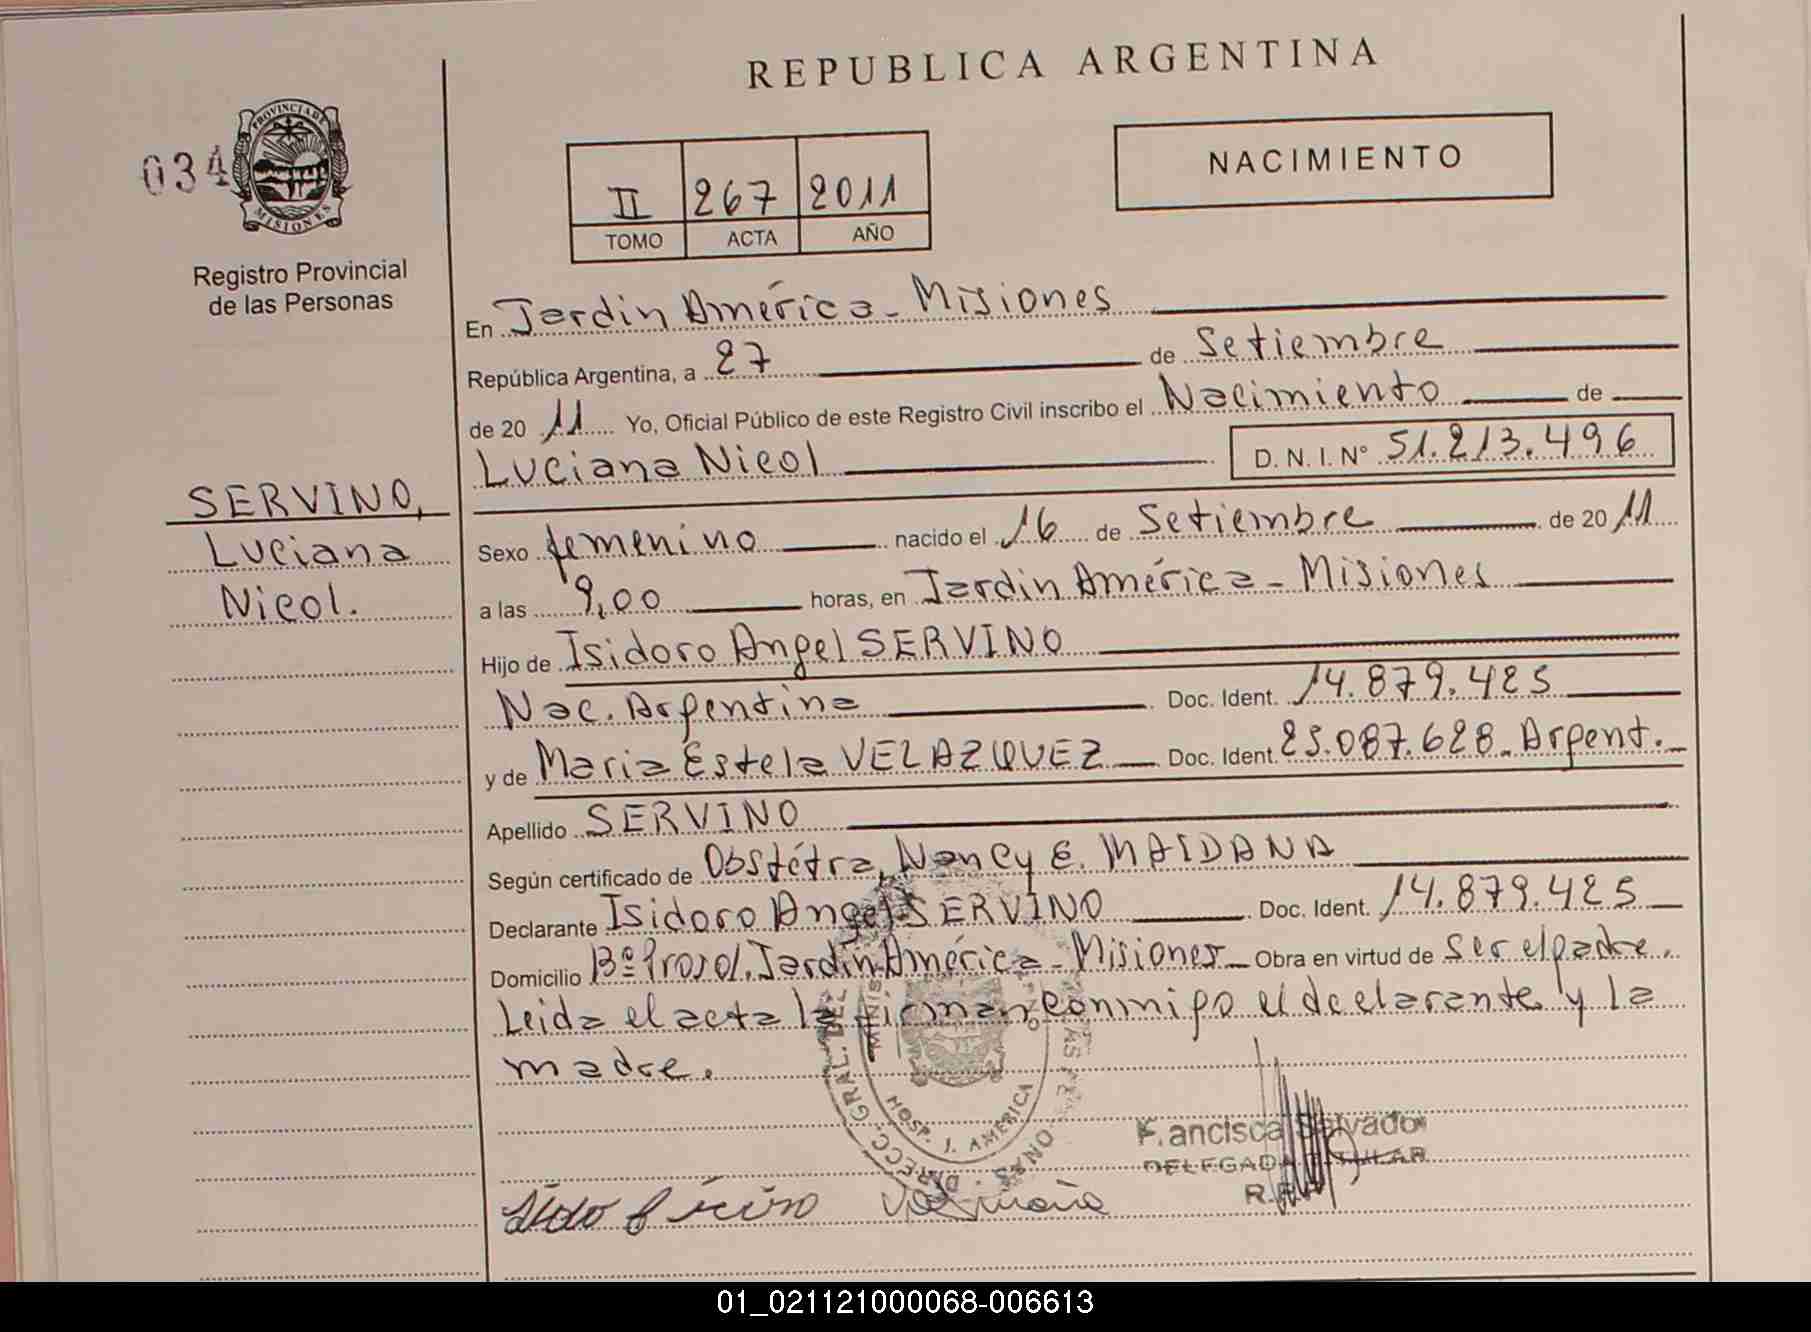 REPUBLICA ARGENTINA
034
PROVINCIA DE
MISIONES
Registro Provincial
de las Personas
II 267 2011
TOMO ACTA AÑO
NACIMIENTO
En Jardin América - Misiones
República Argentina, a 27 de Setiembre
de 2011 Yo, Oficial Público de este Registro Civil inscribo el Nacimiento de
Luciana Nicol D.N.I. Nº 51.213.496
SERVINO,
Luciana
Nicol.
Sexo femenino nacido el 16 de Setiembre de 2011
a las 9,00 horas, en Jardin América - Misiones
Hijo de Isidoro Angel SERVINO
Nac. Argentina Doc. Ident. 14.879.425
y de Maria Estela VELAZQUEZ Doc. Ident. 25.087.628 - Argent.
Apellido SERVINO
Según certificado de Obstétra, Nancy E. MAIDANA
Declarante Isidoro Angel SERVINO Doc. Ident. 14.879.425
Domicilio Bº Jardin América - Misiones Obra en virtud de ser el padre.
Leida el acta la firman conmigo el declarante y la
madre.
DIRECC. GRAL. DEL
HOSP. J. AMERICA
Francisca Salvador
DELEGADA TITULAR
01_021121000068-006613